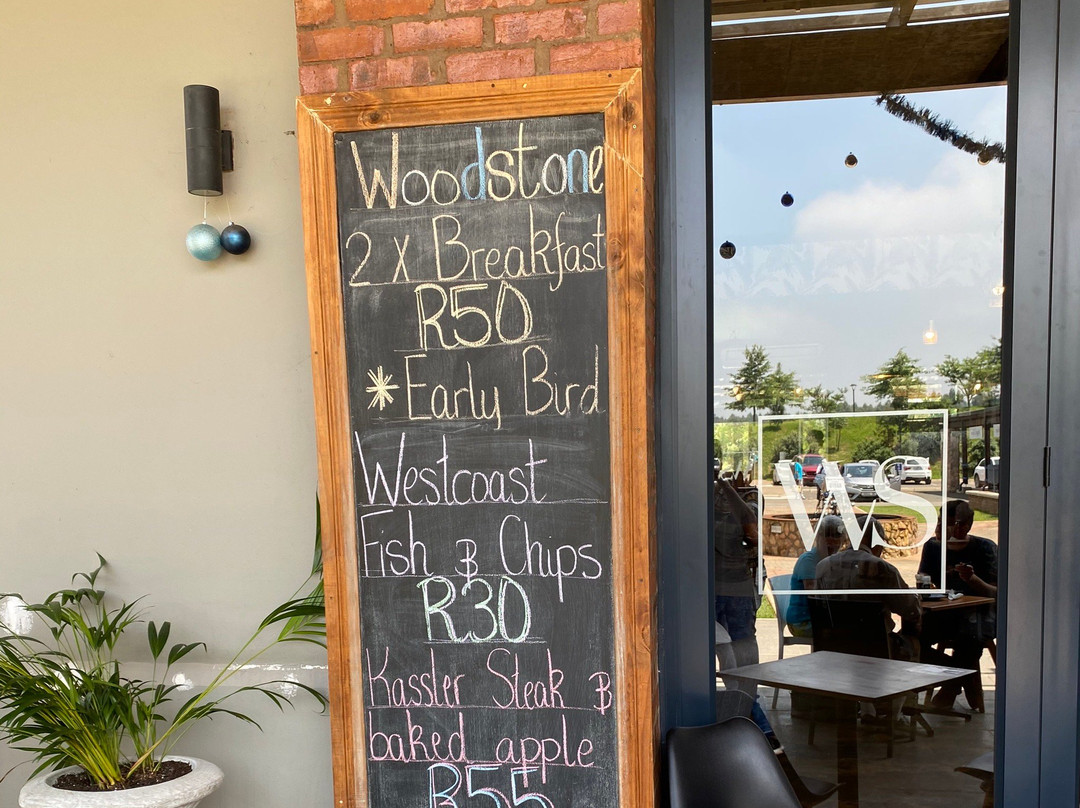 Woodstone
2 x Breakfast
R50
*Early Bird
Westcoast
Fish & Chips
R30
Kassler Steak &
baked apple
R55
WS